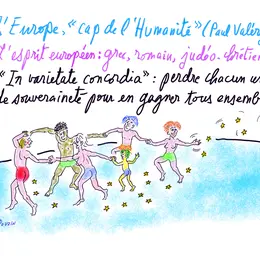 l'Europe, "cap de l'Humanité" (Paul Valéry
l'esprit européen: grec, romain, judéo-chrétien
"In varietate concordia": perdre chacun un
de souveraineté pour en gagner tous ensemb